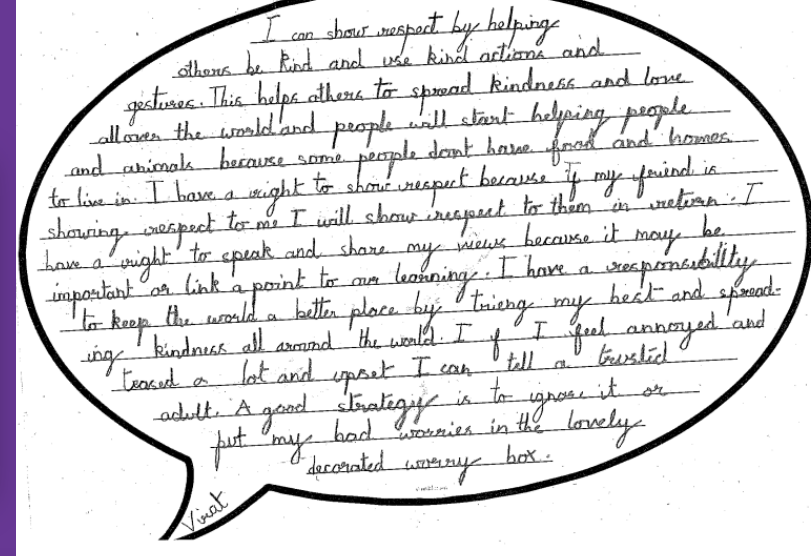 I can show respect by helping
others be kind and use kind actions and
gestures. This helps others to spread kindness and love
all over the world and people will start helping people
and animals because some people dont have food and homes
to live in. I have a right to show respect because if my friend is
showing respect to me I will show respect to them in return. I
have a right to speak and share my views because it may be
important or link a point to our learning. I have a responsibility
to keep the world a better place by trieng my best and spread-
ing kindness all around the world. I f I feel annoyed and
teased a lot and upset I can tell a trusted
adult. A good strategy is to ignore it or
put my bad worries in the lovely
decorated worry box.
Virat